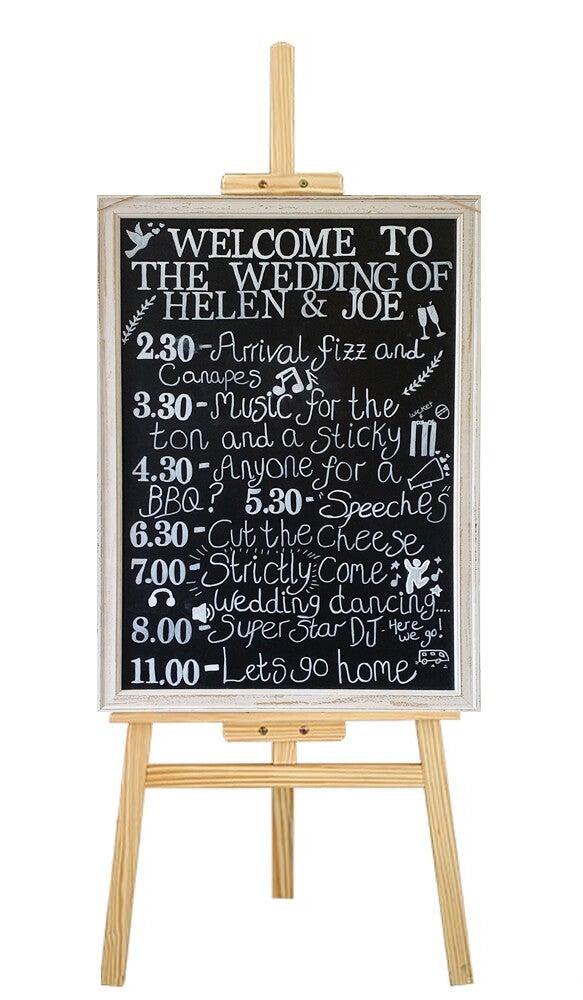 WELCOME TO
THE WEDDING OF
HELEN & JOE
2.30-Arrival fizz and
Canapes
3.30-Music for the
wicket
ton and a sticky
4.30-Anyone for a
BBQ? 5.30-"Speeches"
6.30-Cut the Cheese
7.00-Strictly Come
Wedding dancing....
8.00-Super Star DJ-Here we go!
11.00-Lets go home